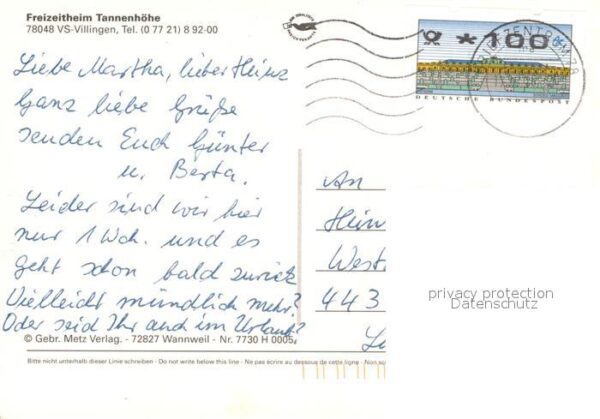 Freizeitheim Tannenhöhe
78048 VS-Villingen, Tel. (0 77 21) 8 92-00
*100
DEUTSCHE BUNDESPOST
Liebe Martha, lieber Heinz
Ganz liebe Grüße
senden Euch Günter
u. Berta.
Leider sind wir hier
nur 1 Woch. und es
geht schon bald zurück
Vielleicht mündlich mehr?
Oder seid Ihr auch im Urlaub?
An
Hein
West
443
privacy protection
Datenschutz
© Gebr. Metz Verlag. - 72827 Wannweil - Nr. 7730 H 0005
Bitte nicht unterhalb dieser Linie schreiben - Do not write below this line - Ne pas écrire au dessous de cette ligne - Non scri